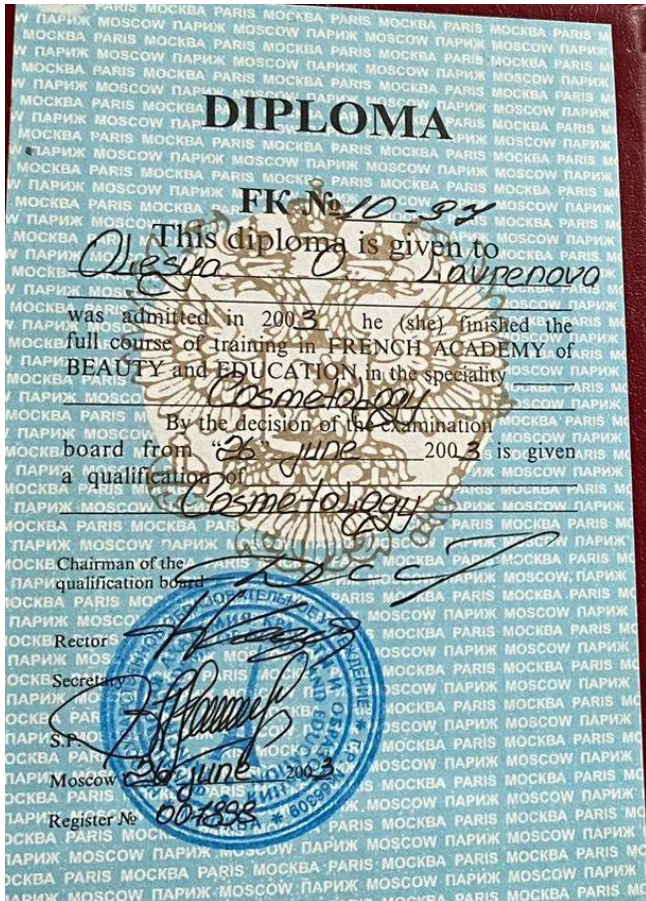 DIPLOMA
FK № 10-97
This diploma is given to
Olesya O Lavrenova
was admitted in 2003 he (she) finished the
full course of training in FRENCH ACADEMY of
BEAUTY and EDUCATION in the speciality
Cosmetology
By the decision of the examination
board from “26” june 2003 is given
a qualification of
Cosmetology
Chairman of the
qualification board
Rector
Secretary
S.P.
Moscow 26 june 2003
Register №